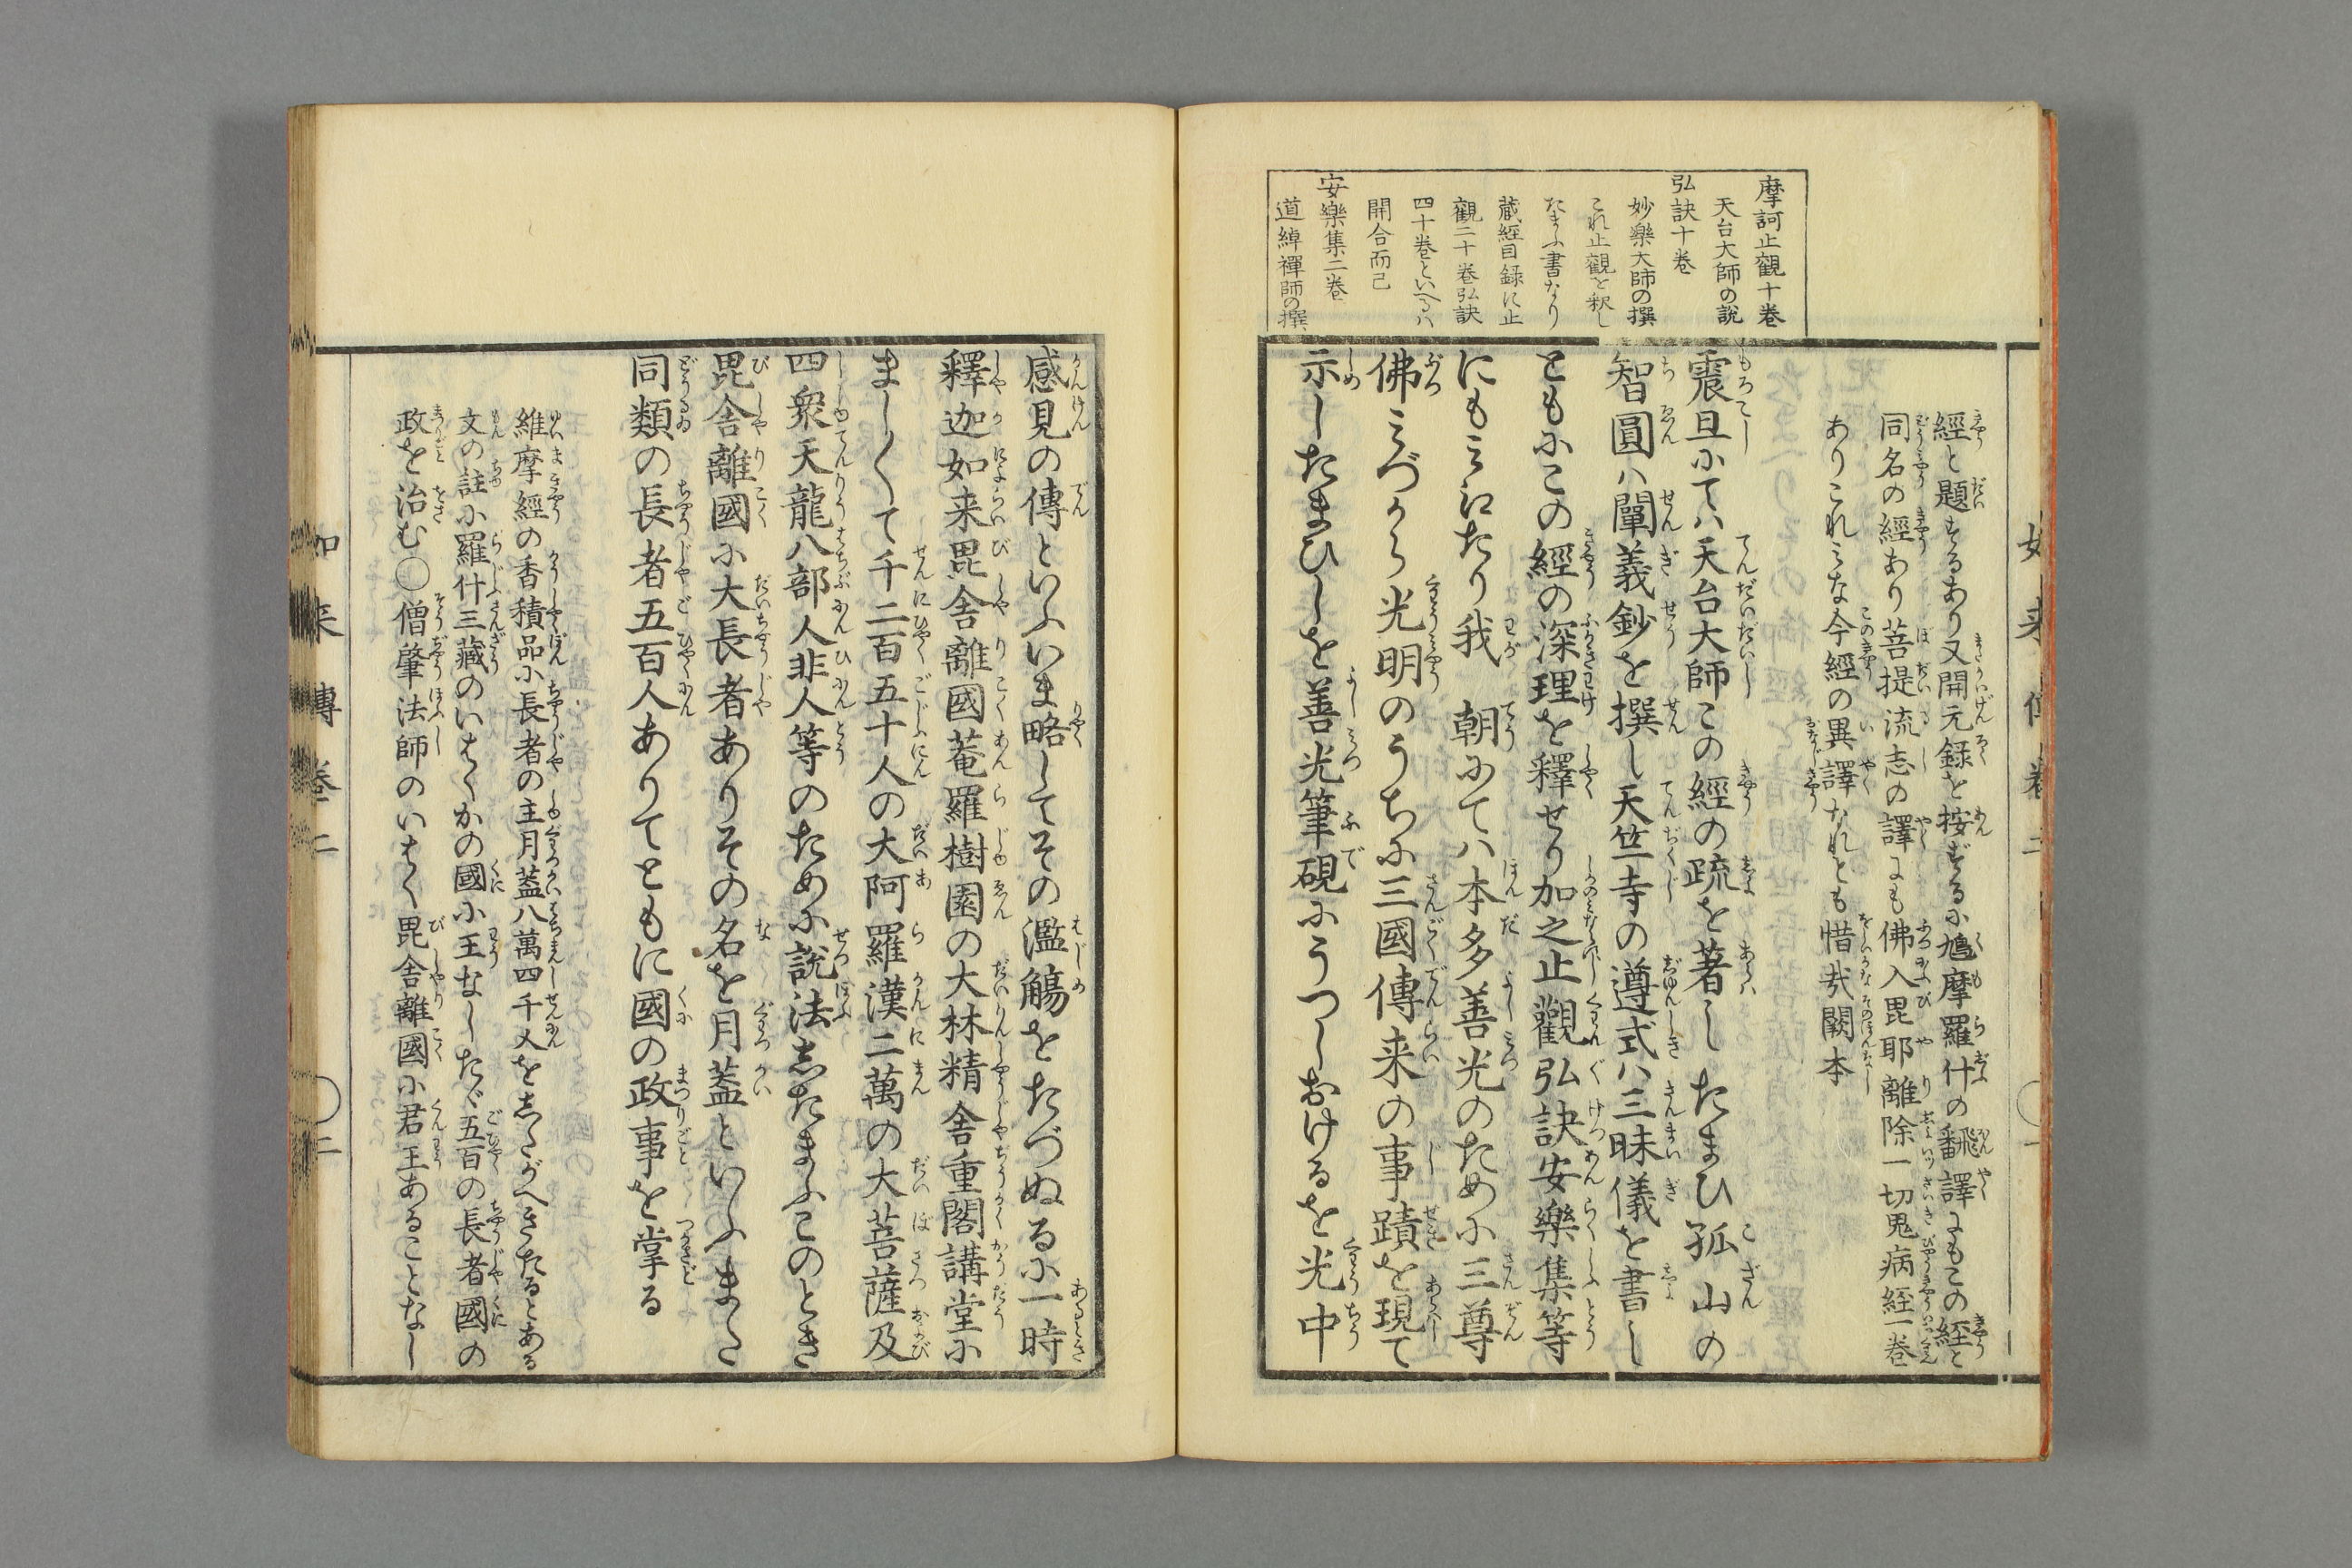 摩訶止觀十巻
天台大師の説
弘訣十巻
妙樂大師の撰
これ止觀を釈し
たまふ書なり
蔵經目録に止
觀二十巻弘訣
四十巻といへるハ
開合而已
安樂集二巻
道綽禪師の撰
經と題するあり又開元録を按ずるに鳩摩羅什の飜譯にもこの経と
同名の經あり菩提流志の譯にも佛入毘耶離除一切鬼病経一巻
ありこれミな今經の異譯なれとも惜哉闕本
震旦にてハ天台大師この經の疏を著ハしたまひ孤山の
智圓ハ闡義鈔を撰し天竺寺の遵式ハ三昧儀を書し
ともにこの經の深理を釋せり加之止觀弘訣安樂集等
にもミえたり我　朝にてハ本多善光のために三尊
佛ミづから光明のうちに三國傳来の事蹟を現て
示したまひしを善光筆硯にうつしおけるを光中
感見の傳といふいま略してその濫觴をたづぬるに一時
釋迦如来毘舎離國菴羅樹園の大林精舎重閣講堂に
ましくて千二百五十人の大阿羅漢二萬の大菩薩及
四衆天龍八部人非人等のために説法したまふこのとき
毘舎離國に大長者ありその名を月蓋といふまた
同類の長者五百人ありてともに國の政事を掌る
維摩經の香積品に長者の主月蓋八萬四千人をしたがへきたるとある
文の註に羅什三藏のいはくかの國に王なしたゞ五百の長者國の
政を治む○僧肇法師のいはく毘舎離國に君王あることなし
如来傳巻二
○二